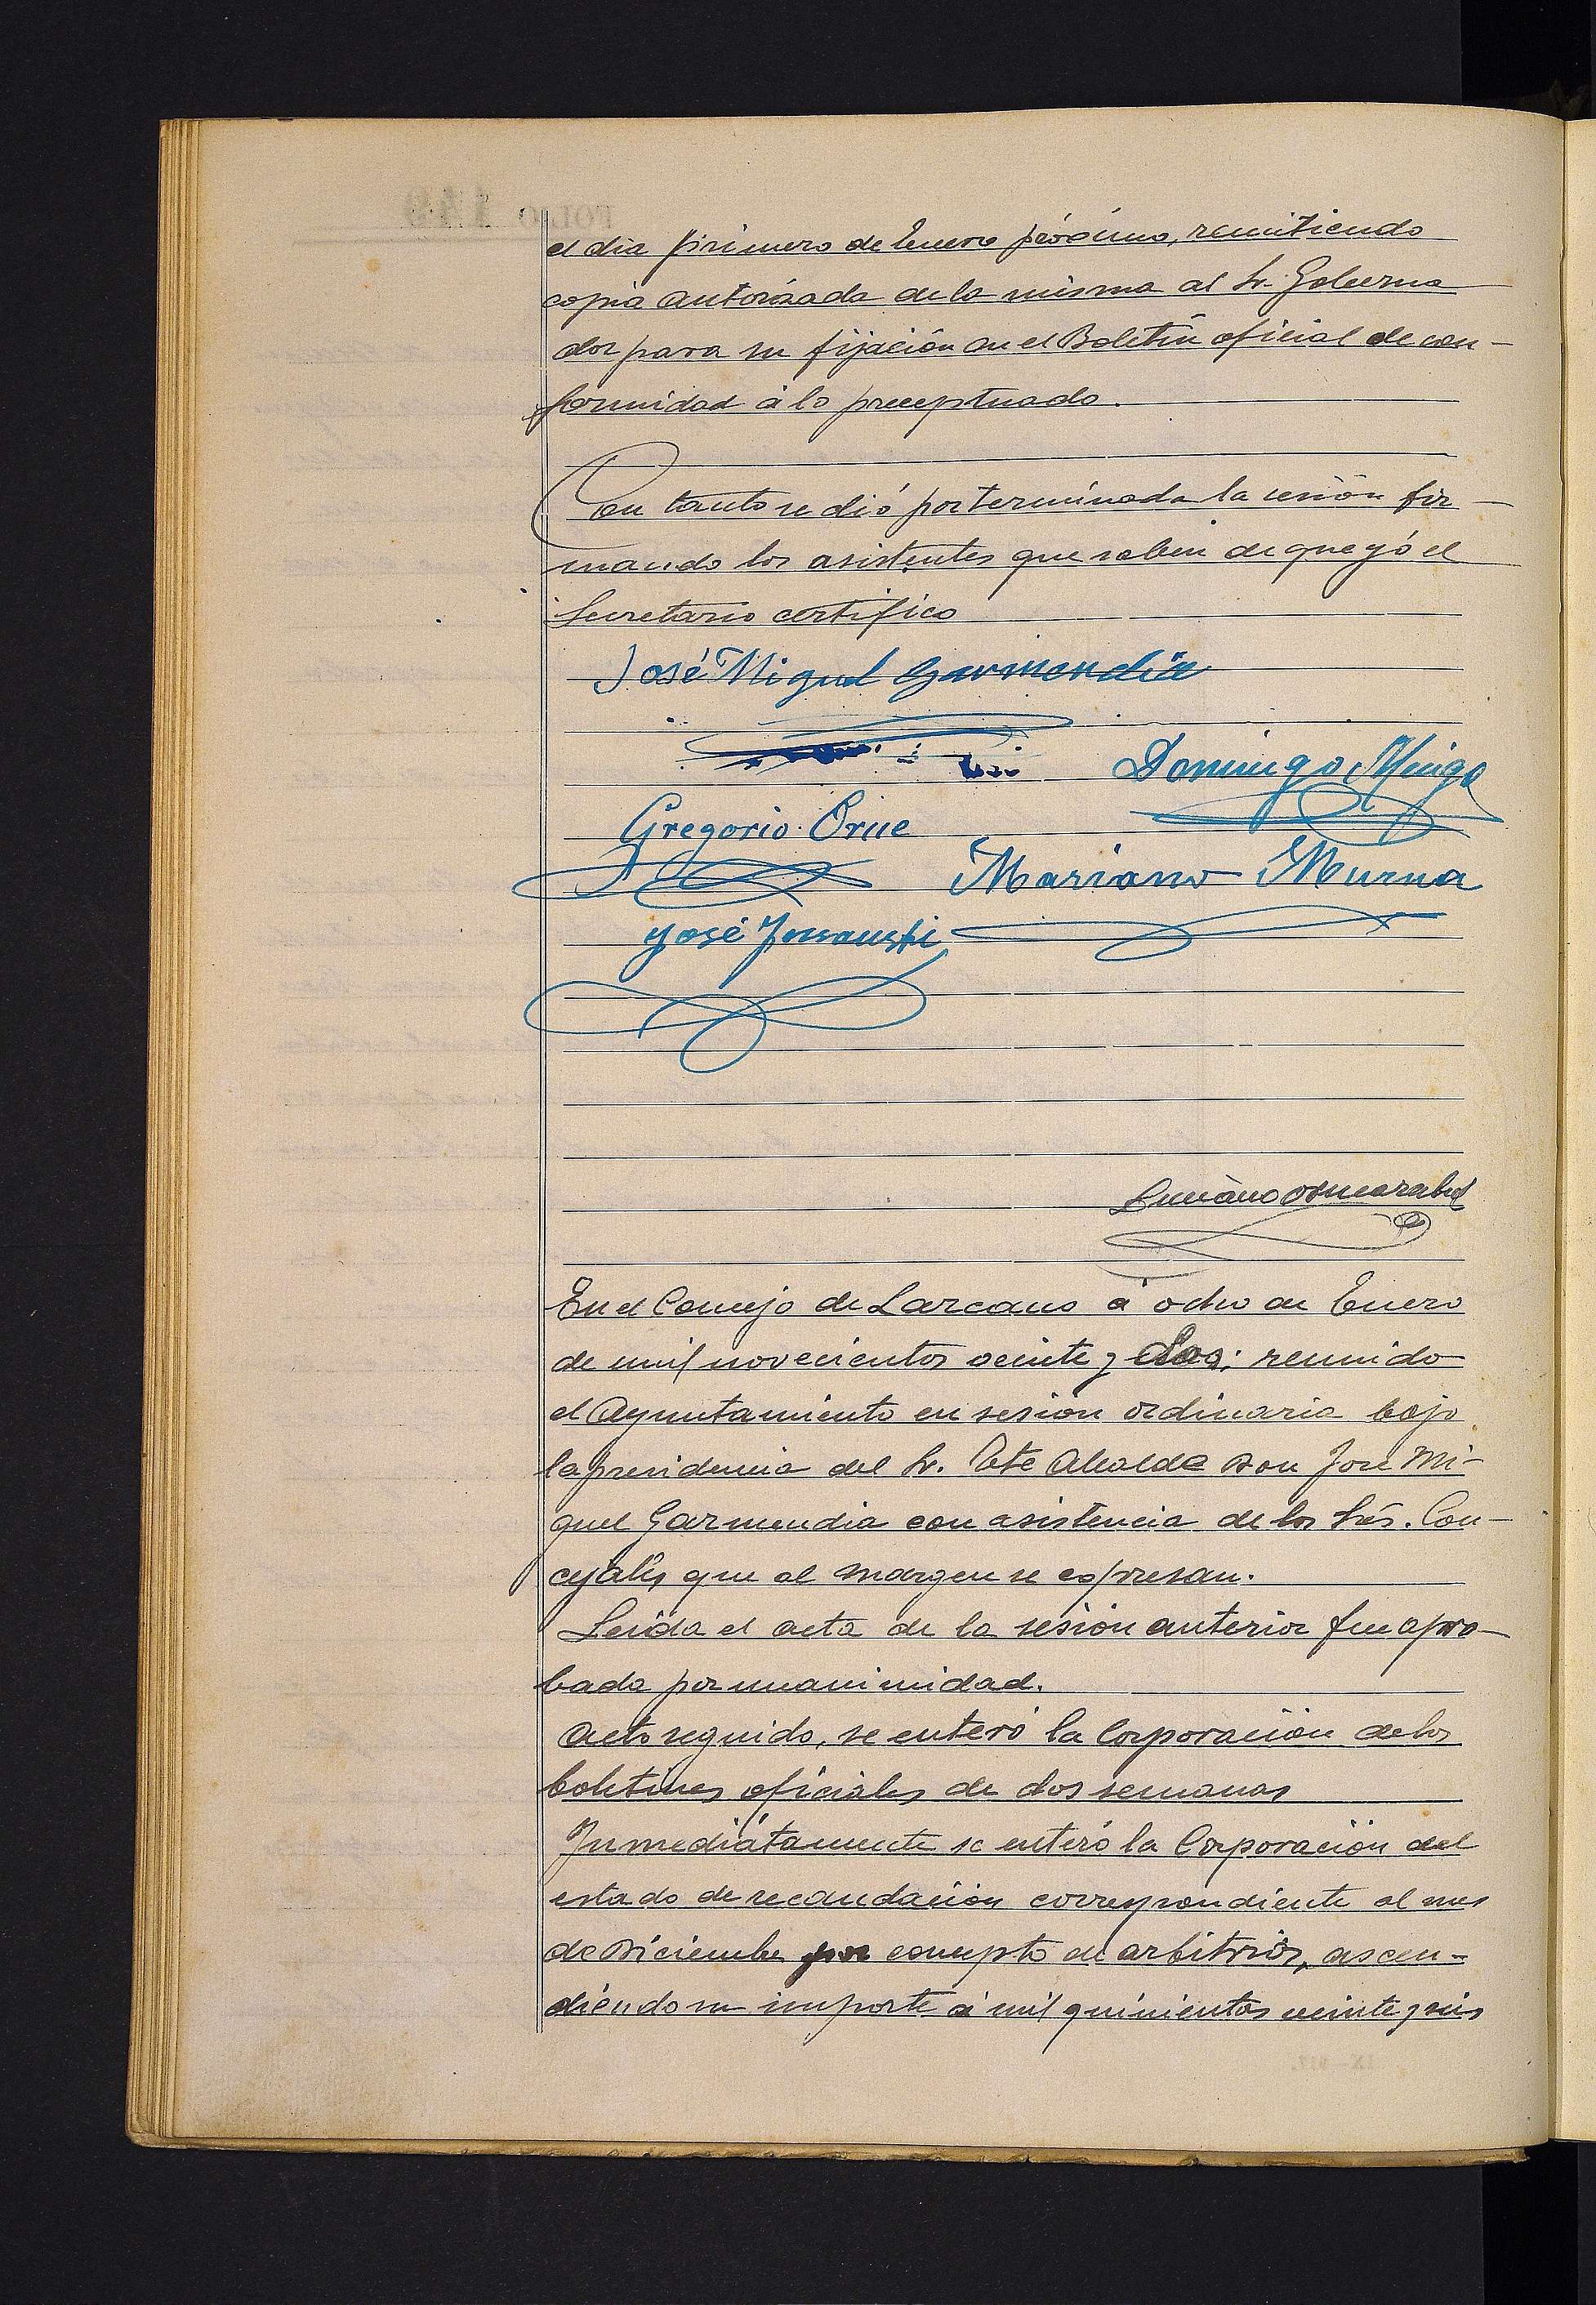 el dia primero de Enero próximo, remitiendo
copia autorizada de la misma al Sr. Goberna
dor para su fijación en el Boletín oficial de con-
formidad á lo preceptuado.
En tanto se dió por terminada la sesión fir-
mando los asistentes que saben de que yó el
Secretario certifico
José Miguel Garmendia
Domingo
Gregorio Orue
Mariano Murua
José
Luciano
En el Concejo de Lazcano á ocho de Enero
de mil novecientos veinte y dos; reunido
el Ayuntamiento en sesion ordinaria bajo
la presidencia del Sr. Tete Alcalde Don José Mi-
guel Garmendia con asistencia de los Srés. Con-
cejales que al margen se espresan.
Leida el acta de la sesión anterior fue apro-
bada por unanimidad.
Acto seguido, se enteró la Corporación de los
boletines oficiales de dos semanas
Inmediátamente se enteró la Corporación del
estado de recaudación correspondiente al mes
de Diciembre por concepto de arbitrios, ascen-
diendo su importe á mil quinientos veinte y seis